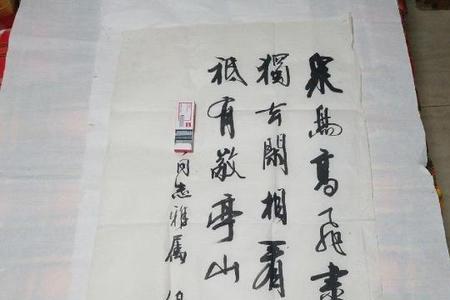 衆鳥高飛盡
獨去閑相看
祗有敬亭山
同志雅属